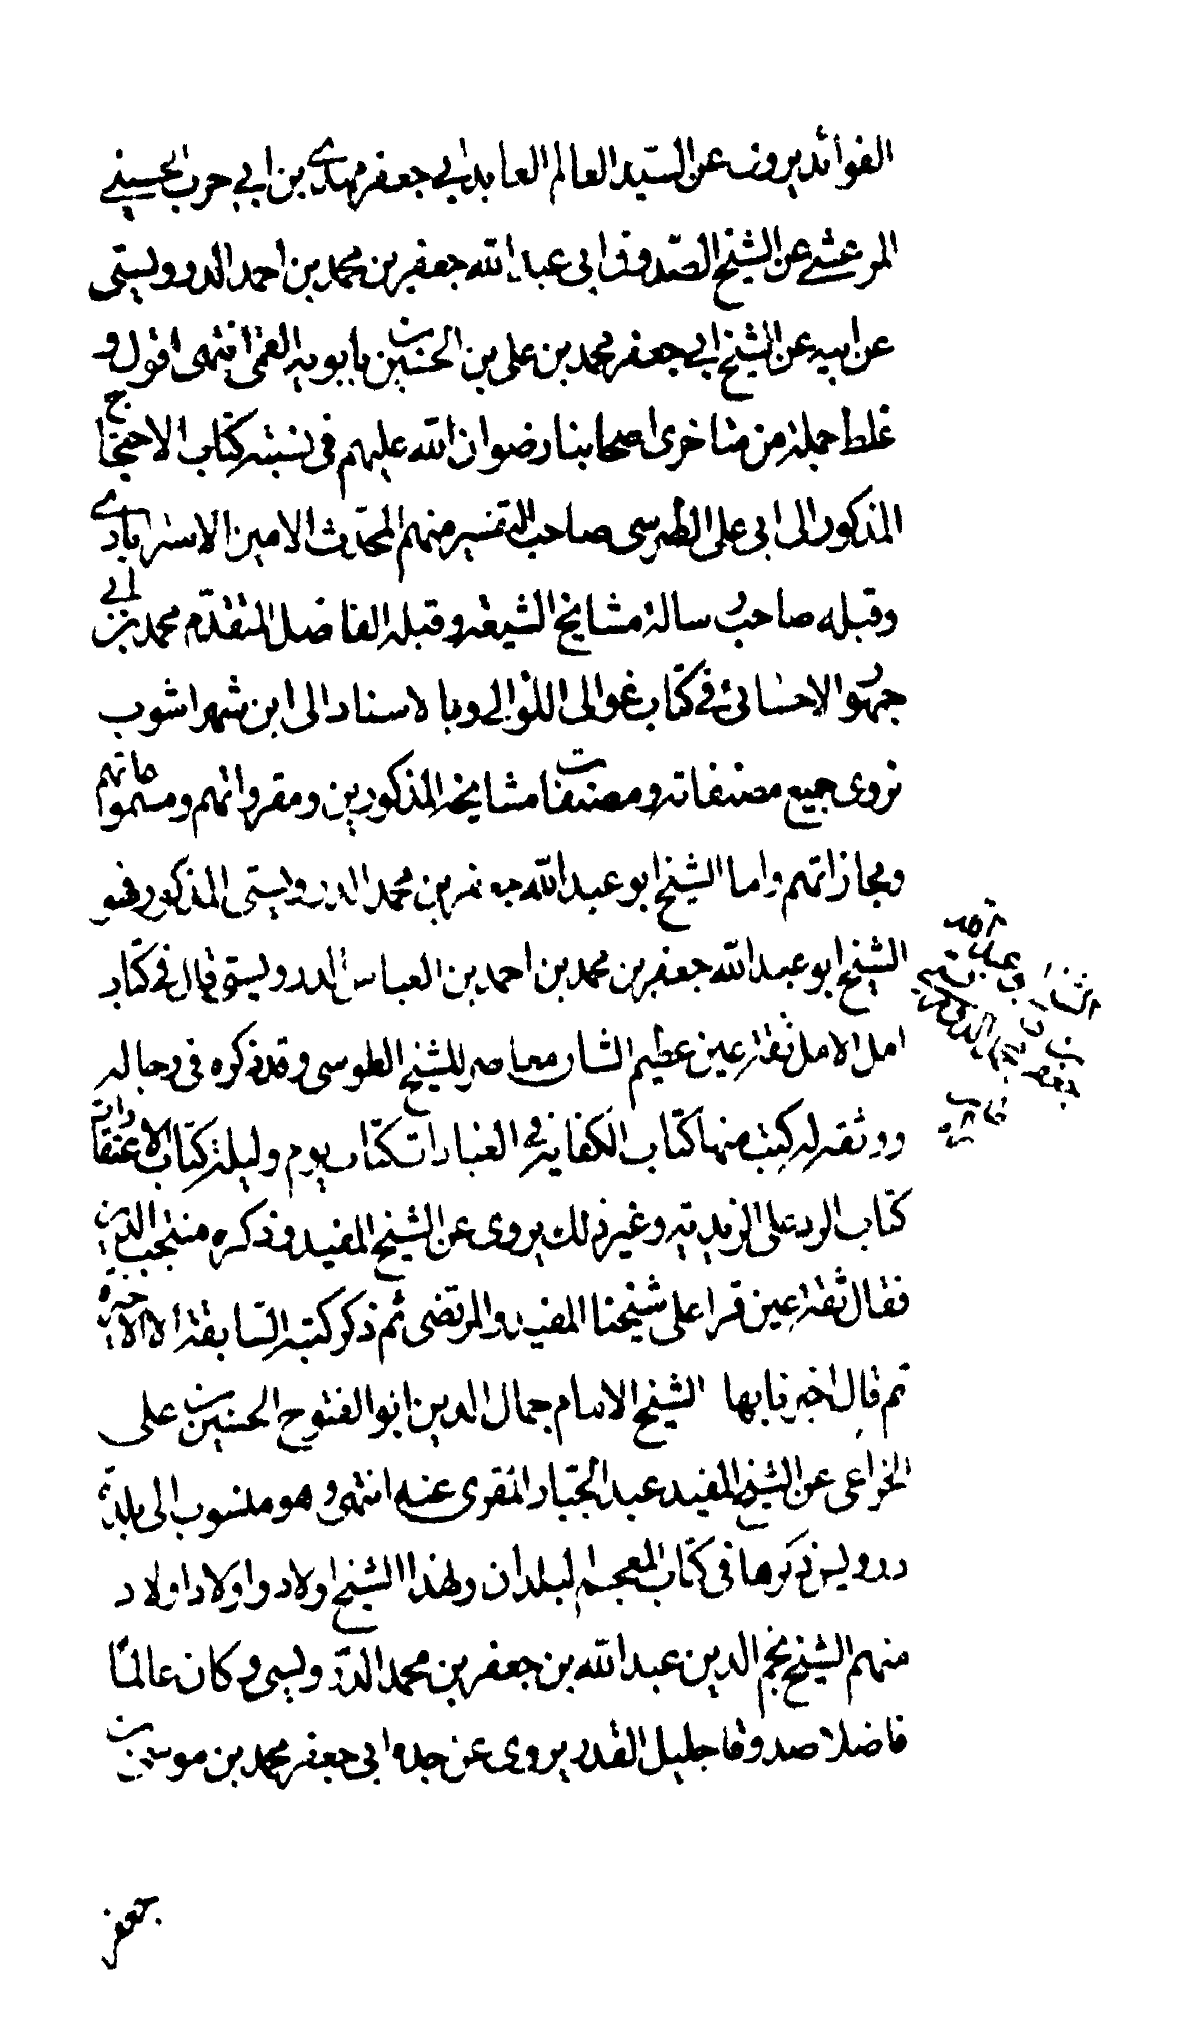 الفوائد يروى عن السيد العالم العابد ابي جعفر مهدي بن ابي حرب الحسيني
المرعشي عن الشيخ الصدوق ابى عبد الله جعفر بن محمد بن احمد الدرويستى
عن ابيه عن الشيخ ابي جعفر محمد بن على بن الحسين بن بابويه القمى انتهى اقول و
غلط جملة من متاخرى اصحابنا رضوان الله عليهم فى نسبته كتاب الاحتجاج
المذكور الى ابى على الطبرسى صاحب التفسير منهم المحدث الامين الاسترابادي
وقبله صاحب رسالة مشايخ الشيعة وقبله الفاضل المتقدم محمد بن ابي
جمهور الاحسائى في كتاب غوالى اللؤالي وبالاسناد الى ابن شهراشوب
نروى جميع مصنفاته ومصنفات مشايخه المذكورين ومقرواتهم ومسموعاتهم
ومجازاتهم واما الشيخ ابو عبد الله جعفر بن محمد الدرويستى المذكور فهو
الشيخ ابو عبد الله جعفر بن محمد بن احمد بن العباس الدرويستى قال فى كتاب
امل الامل ثقة عين عظيم الشان معاصر للشيخ الطوسى وقد ذكره فى رجاله
ووثقه له كتب منها كتاب الكفاية في العبادات كتاب يوم وليلة كتاب الاعتقادات
كتاب الرد على الزيدية وغير ذلك يروى عن الشيخ المفيد وذكره منتجب الدين
فقال ثقة عين قرا على شيخنا المفيد والمرتضى ثم ذكر كتبه السابقة الا الاخير
ثم قال اخبرنا بها الشيخ الامام جمال الدين ابو الفتوح الحسين بن على
الخزاعى عن الشيخ المفيد عبد الجبار المقرى عنه انتهى وهو منسوب الى بلدة
درويس ذكرها فى كتاب المعجم البلدان ولهذا الشيخ اولاد واولاد اولاد
منهم الشيخ نجم الدين عبد الله بن جعفر بن محمد الدرويسى وكان عالما
فاضلا صدوقا جليل القدر يروى عن جده ابى جعفر محمد بن موسى بن
جعفر